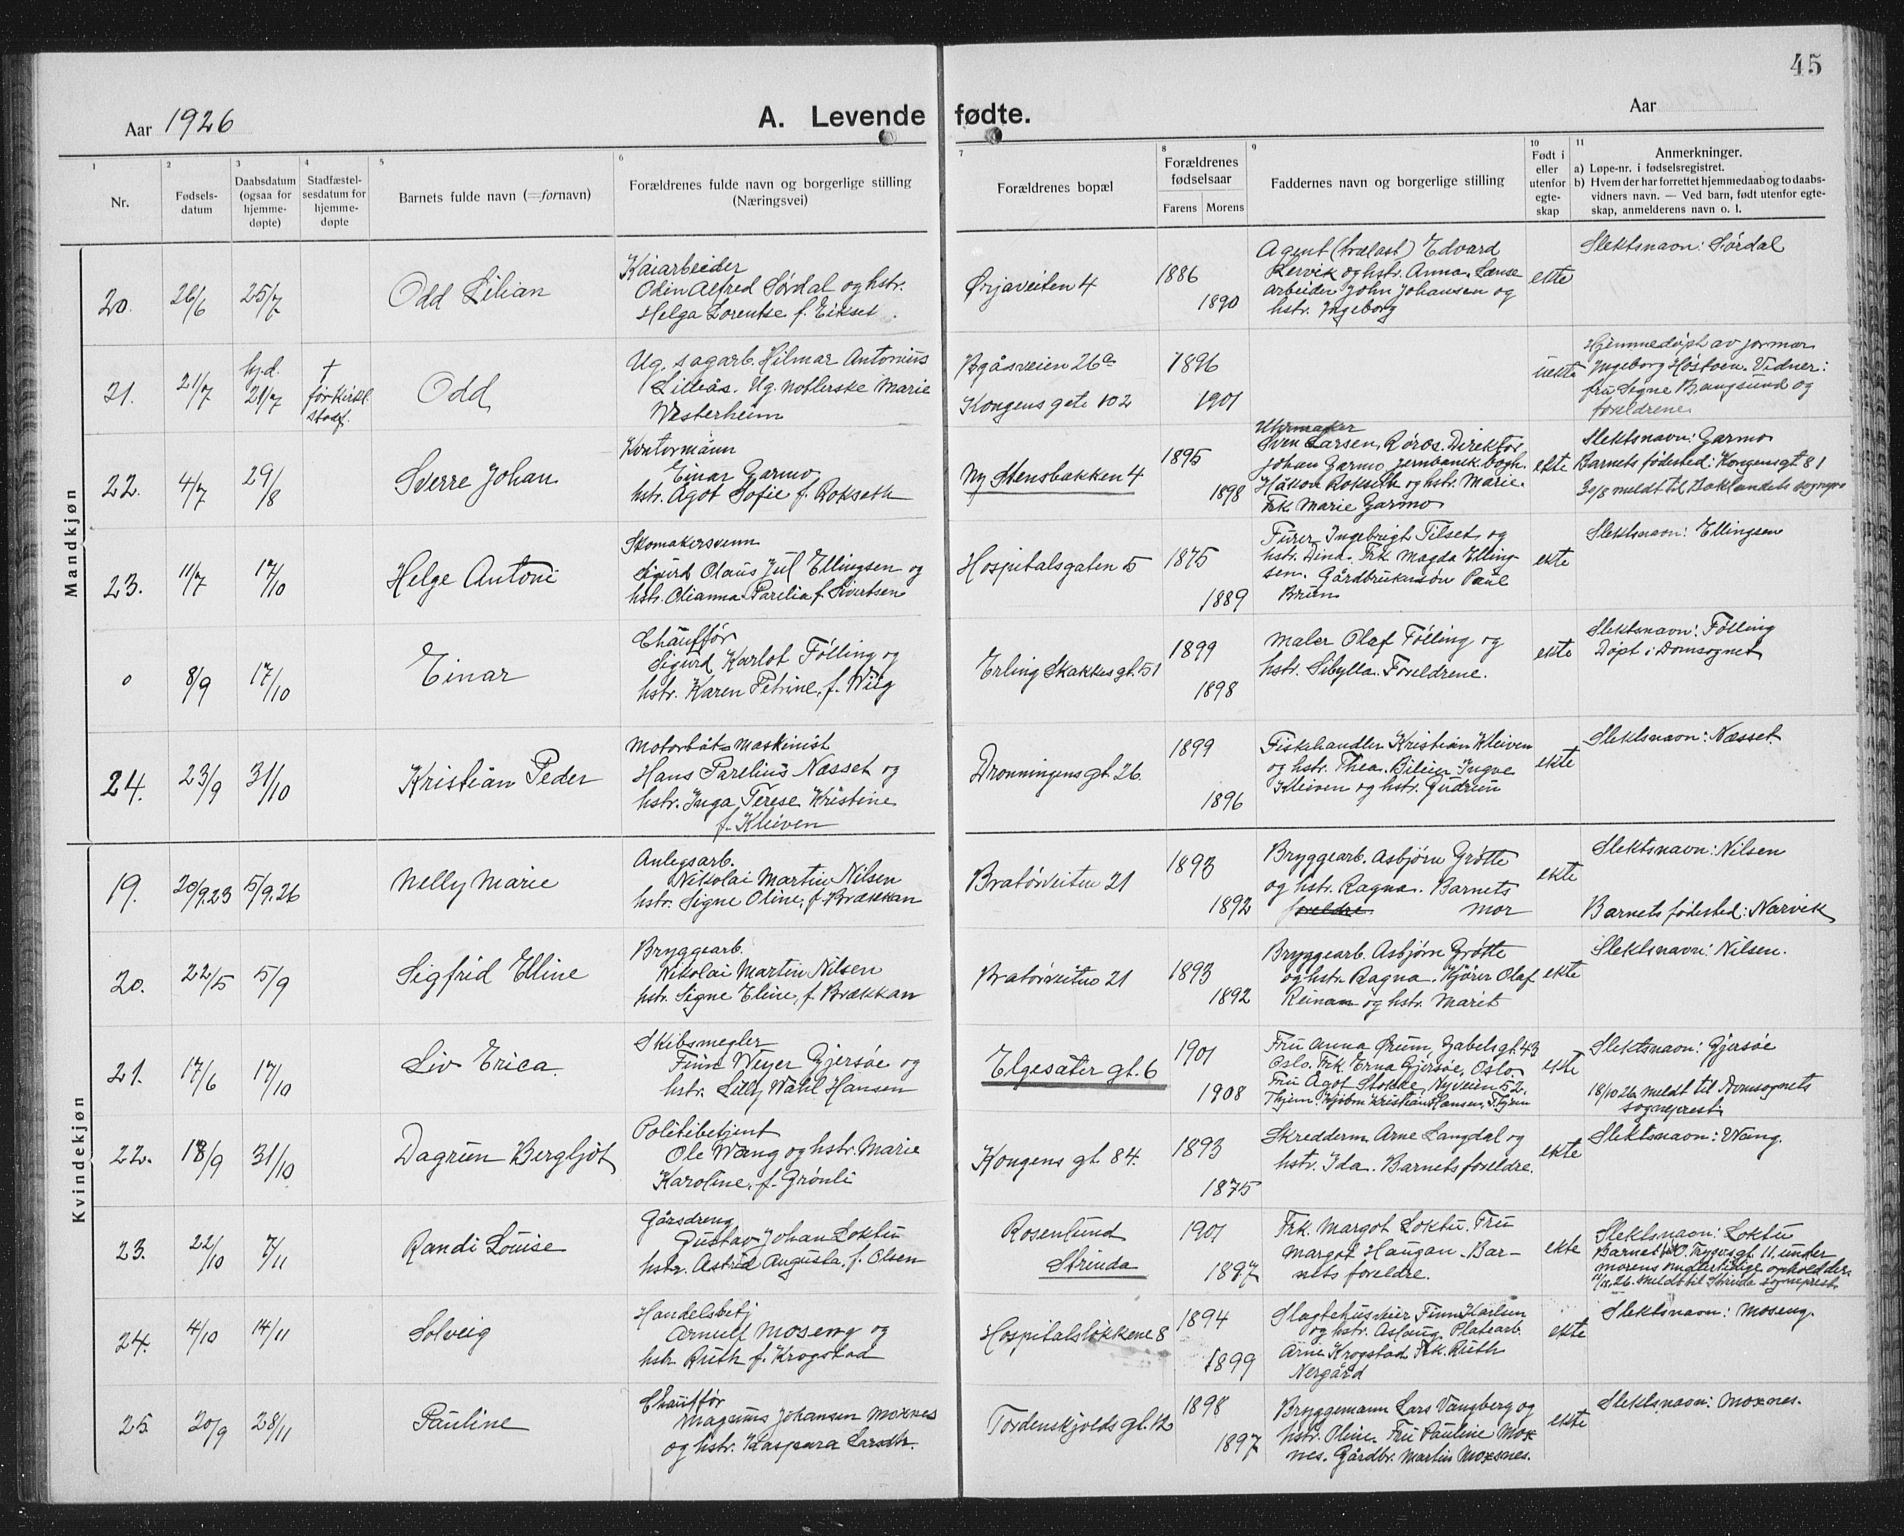 45
Aar 1926
A. Levende fødte.
Aar
1
Nr.
2
Fødsels-
datum
3
Daabsdatum
(ogsaa for
hjemme-
døpte)
4
Stadfæstel-
sesdatum for
hjemme-
døpte
5
Barnets fulde navn (=fornavn)
6
Forældrenes fulde navn og borgerlige stilling
(Næringsvei)
7
Forældrenes bopæl
8
Forældrenes
fødselsaar
Farens Morens
9
Faddernes navn og borgerlige stilling
10
Født i
eller
utenfor
egte-
skap
11
Anmerkninger.
a) Løpe-nr. i fødselsregistret.
b) Hvem der har forrettet hjemmedaab og to daabs-
vidners navn. — Ved barn, født utenfor egte-
skap, anmelderens navn o. l.
Mandkjøn
20. 26/6 25/7
Odd Lilian
Kaiarbeider
Odin Alfred Sørdal og hstr.
Helga Lorentse f. Eikset.
Ørjaveiten 4
1886
1890
Agent (trælast) Edvard
Lervik og hstr. Anna. Lænse
arbeider John Johansen og
hstr. Ingeborg
ekte
Slektsnavn: Sørdal
21. 21/7
hj.d.
21/7
†
før kirkl.
stadf.
Odd
Ug. sagarb. Hilmar Antonius
Lilleås. Ug. Marie
Westerheim
Bgåsveien 26a
Kongens gate 102
1896
1901
uekte
Hjemmedøpt av jormor
Ingeborg Høstven. Vidner:
fru Signe Bangsund og
foreldrene
22. 4/7 29/8
Sverre Johan
Kontormann
Einar Garmo
hstr. Agot Sofie f. Rokseth
Ny Stensbakken 4
1895
1898
Uhrmaker
Sven Larsen, Røros. Direktør
Johan Garmo, jernbanek. bogh.
Håkon Rokseth og hstr. Marie.
Frk. Marie Garmo
ekte
Slektsnavn: Garmo
Barnets fødested: Kongensgt 81
30/8 meldt til Baklandets sognepr.
23. 11/7 17/10
Helge Antoni
Skomakersvenn
Sigurd Olaus Jul Ellingsen og
hstr. Olianna Parelia f. Sivertsen
Hospitalsgaten 5
1875
1889
Furer Ingebrigt Tilset og
hstr. Dina. Frk. Magda Elling
sen. Gårdbruker Paul
Bruun
ekte
Slektsnavn: Ellingsen
0 8/9 17/10
Einar
Chauffør
Sigurd Karlot Følling og
hstr. Karen Petrine, f. Wiig
Erling Skakkes gt. 51
1899
1898
Maler Olaf Følling og
hstr. Sibylla. Foreldrene.
ekte
Slektsnavn: Følling
Døpt i Domsognet
24. 23/9 31/10
Kristian Peder
Motorbåt-Maskinist
Hans Parelius Næsset og
hstr. Inga Terese Kristine
f. Kleiven
Dronningens gt. 26
1899
1896
Fiskehandler Kristian Kleiven
og hstr. Thea. Bileier Ingve
Kleiven og hstr. Gudrun
ekte
Slektsnavn: Næsset.
Kvindekjøn
19. 20/9.23 5/9.26
Nelly Marie
Anlegsarb.
Nikolai Martin Nilsen
hstr. Signe Oline, f. Brækkan
Bratørveiten 21
1893
1892
Bryggearb. Asbjørn Grøtte
og hstr. Ragna. Barnets
foreldre mor
ekte
Slektsnavn: Nilsen
Barnets fødested: Narvik
20. 22/5 5/9
Sigfrid Elline
Bryggearb.
Nikolai Martin Nilsen
hstr. Signe Eline, f. Brækkan
Bratørveiten 21
1893
1892
Bryggearb. Asbjørn Grøtte
og hstr. Ragna. Kjører Olaf
Reinan og hstr. Marit
ekte
Slektsnavn: Nilsen.
21. 17/6 17/10
Liv Erica.
Skibsmegler
Finn Weyer Gjersøe og
hstr. Lilly Wahl Hansen
Elgesæter gt. 6
1901
1908
Fru Anna Ørum, Gabelsgt. 43
Oslo. Frk. Erna Gjersøe, Oslo
Fru Agot Stokke, Nyveien 52.
Thjem. Kjøbm. Kristian Hansen, Thjem
ekte
Slektsnavn: Gjersøe
18/10 26 meldt til Domsognets
sogneprest
22. 18/9 31/10
Dagrun Bergljot
Politibetjent
Ole Wang og hstr. Marie
Karoline, f. Grønli
Kongens gt. 84.
1893
1875
Skredderm. Arne Langdal og
hstr. Ida. Barnets foreldre
ekte
Slektsnavn: Wang.
23. 22/10 7/11
Randi Louise
Gårsdreng
Gustav Johan Loktu
hstr. Astrid Augusta, f. Olsen
Rosenlund
Strinda
1901
1897
Frk. Margot Loktu. Fru
Margot Haugan. Bar-
nets foreldre.
ekte
Slektsnavn: Loktu
Barnet O. Trygvs gt. 11. under
morens midlertidige ophold der.
26. meldt til Strinda sogneprest
24. 4/10 14/11
Solveig
Handelsbetj
Arnulf Moseng og
hstr. Ruth f. Krogstad
Hospitalsløkkene 8
1894
1899
Finn Karlsen
og hstr. Aslaug. Platearb.
Arne Krogstad Frk. Ruth
Nergård
ekte
Slektsnavn: Moseng.
25. 20/9 28/11
Pauline
Chauffør
Magnus Johansen Moxnes
og hstr. Kaspara Larsdtr.
Tordenskjolds gt. 12
1898
1897
Bryggemann Lars Vangberg og
hstr. Oline. Fru Pauline Mox
nes. Gårdbr. Martin Moxsnes.
ekte
Slektsnavn: Moxnes.